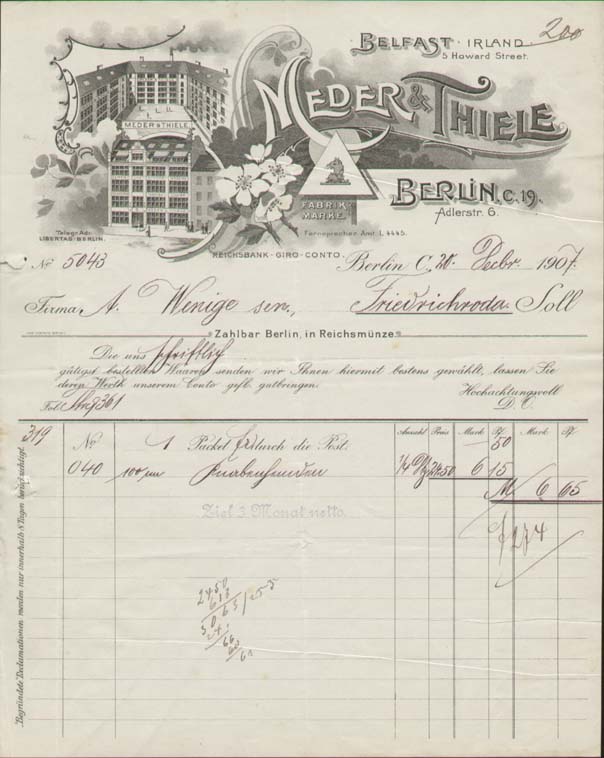 200
BELFAST · IRLAND
5 Howard Street.
MEDER & THIELE
MEDER & THIELE
FABRIK-MARKE.
BERLIN, C. 19.
Adlerstr. 6.
Telegr. Adr.
LIBERTAS-BERLIN.
Fernsprecher Amt I, 4445.
REICHSBANK-GIRO-CONTO.
No 5043
Berlin C, 20. Febr. 1907.
Firma A. Wenige sen., Friedrichroda. Soll
Zahlbar Berlin, in Reichsmünze
Die uns schriftlich
gütigst bestellten Waaren senden wir Ihnen hiermit bestens gewählt, lassen Sie
deren Werth unserem Conto gefl. gutbringen.
Hochachtungsvoll
D. O.
Fol.
319
No
1 Packet durch die Post.
Anzahl Preis Mark Pf. Mark Pf.
50
040 100 cm Knabenhemden 1/4 24 50 6 15
M 6 65
Ziel 3 Monat netto.
274
2450
615
Begründete Reclamationen werden nur innerhalb 8 Tagen berücksichtigt.